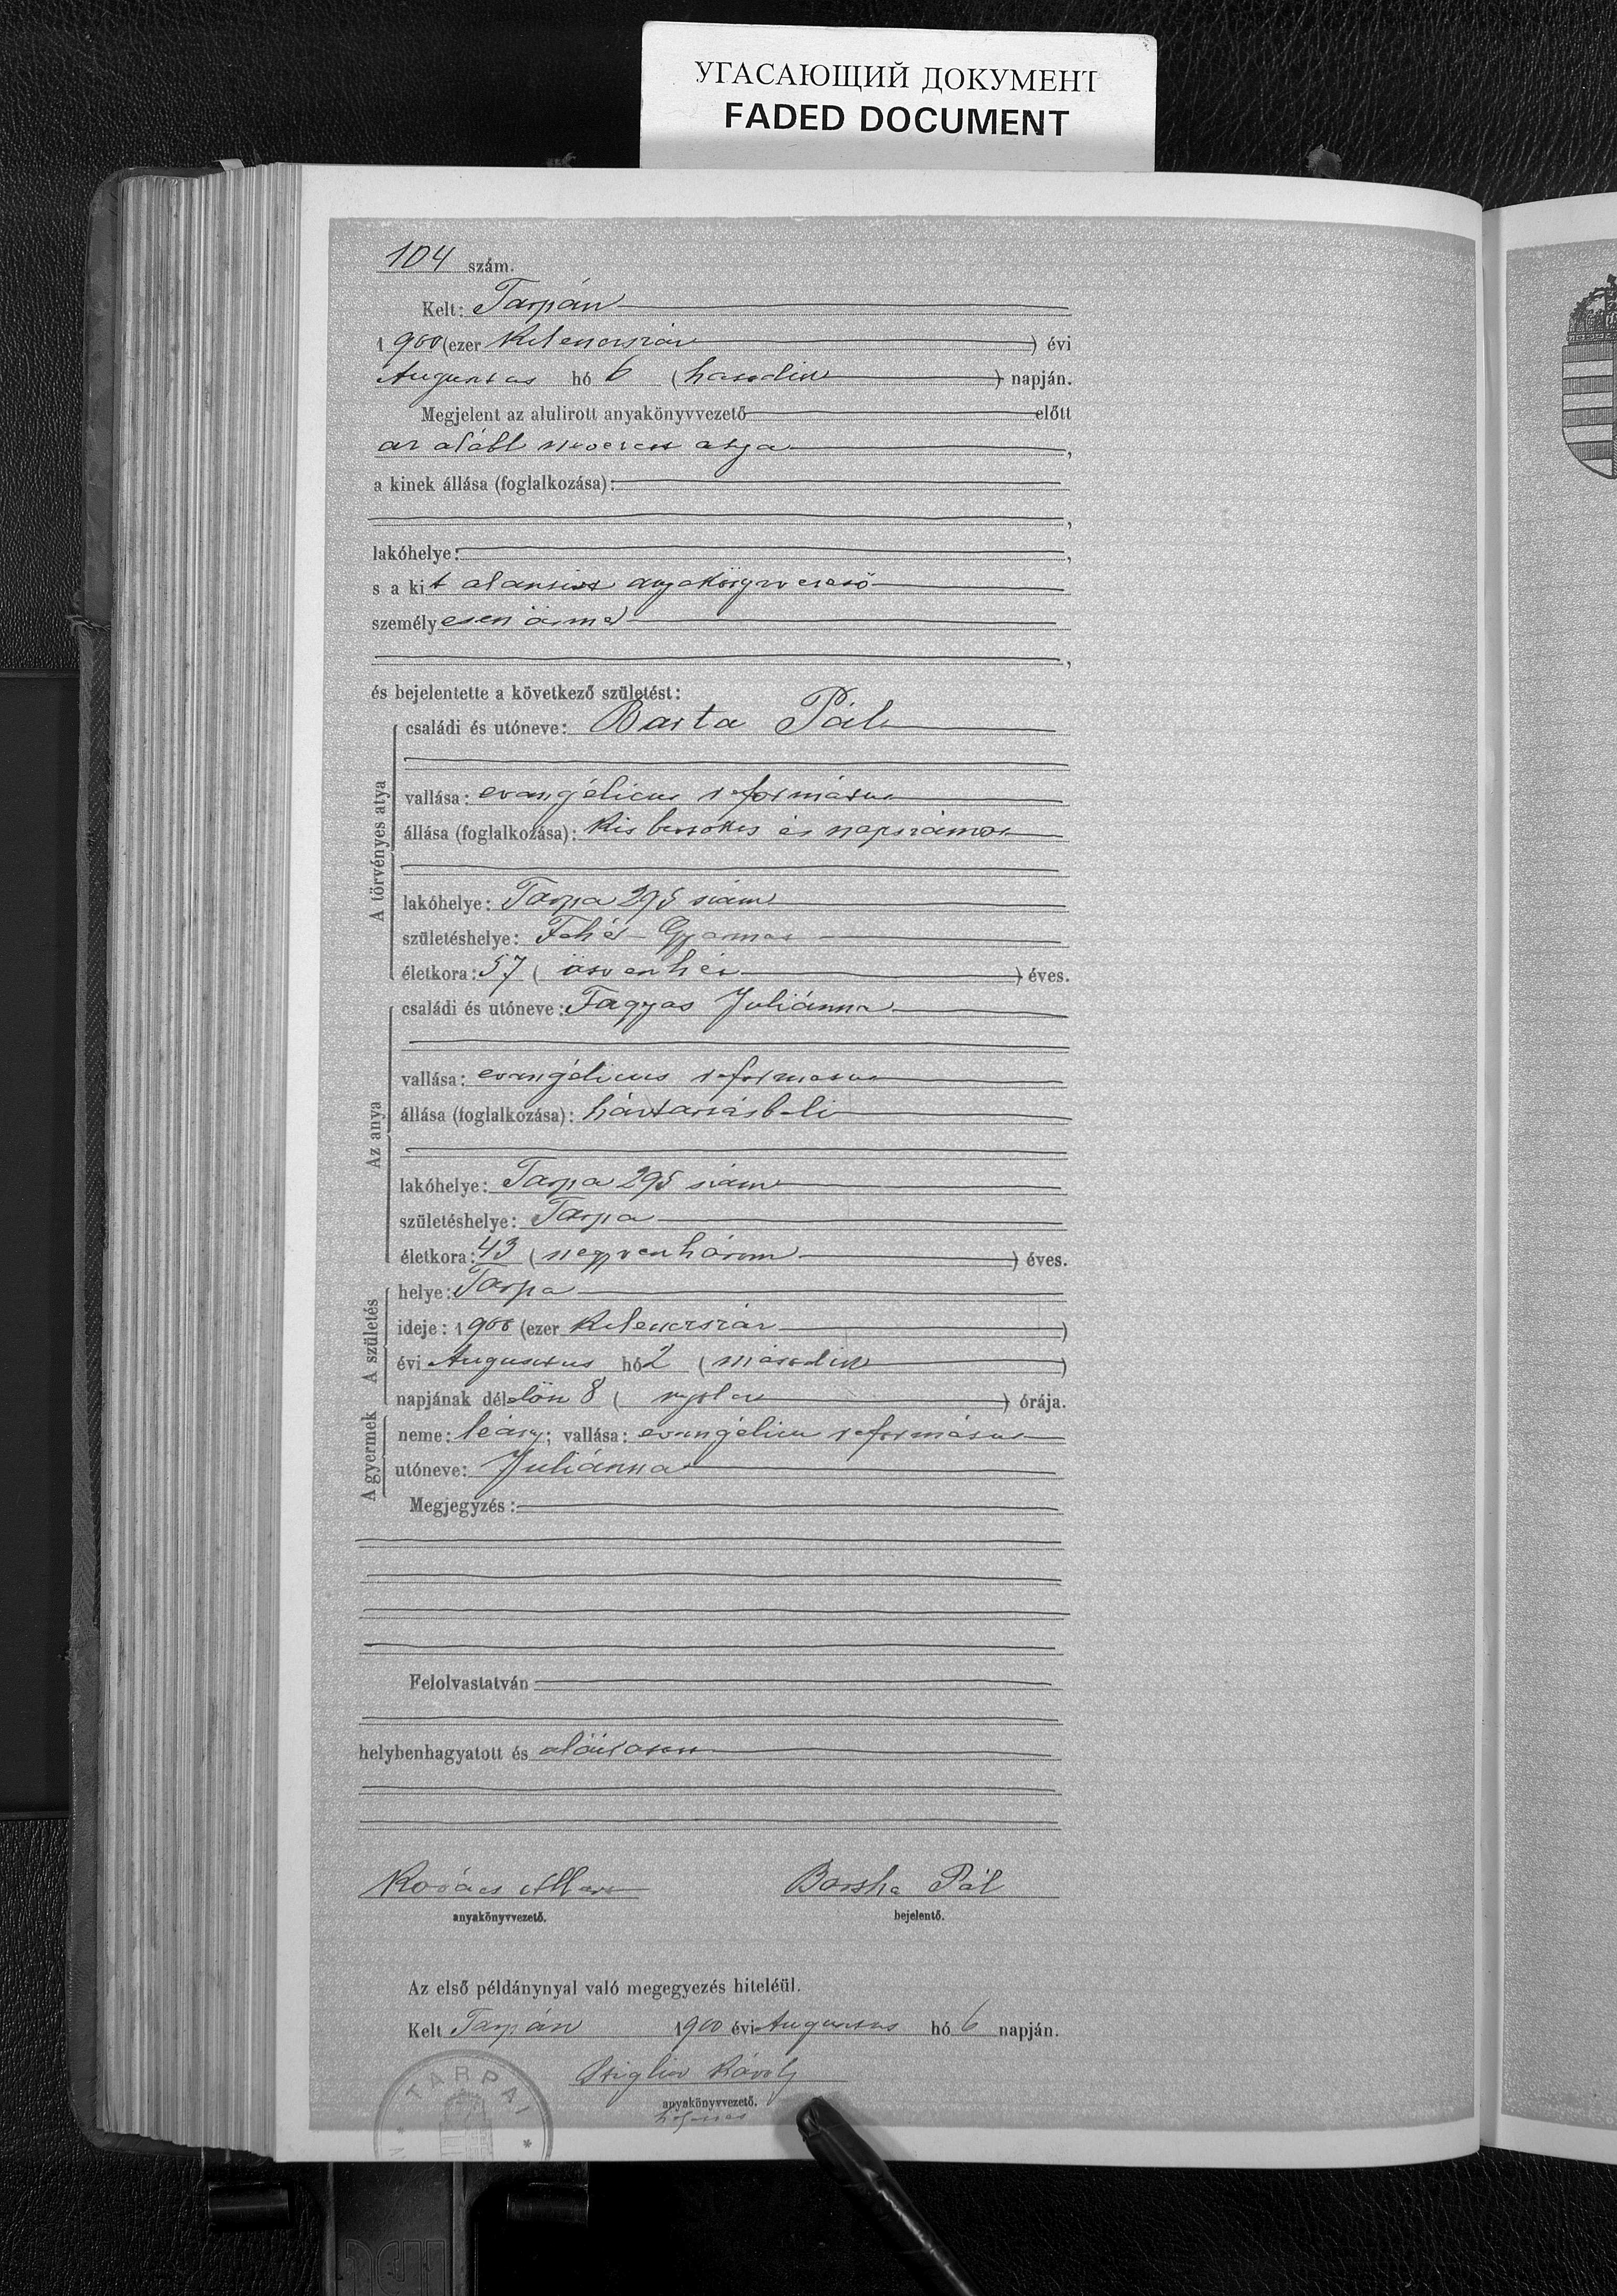 УГАСАЮЩИЙ ДОКУМЕНТ
FADED DOCUMENT
104 szám.
Kelt: Tarpán
1900 (ezer kilenczszáz) évi
Augusztus hó 6 (hatodik) napján.
Megjelent az alulirott anyakönyvvezető előtt
az alább nevezett atya,
a kinek állása (foglalkozása):
,
lakóhelye: ,
s a kit alantirt anyakönyvvezető
személyesen ösmer
,
és bejelentette a következő születést:
A törvényes atya
családi és utóneve: Barta Pál
vallása: evangélicus református
állása (foglalkozása): kis birtokos és napszámos
lakóhelye: Tarpa 295 szám
születéshelye: Fehér Gyarmat
életkora: 57 (ötvenhét) éves.
Az anya
családi és utóneve: Fagyas Juliánna
vallása: evangélicus református
állása (foglalkozása): háztartásbeli
lakóhelye: Tarpa 295 szám
születéshelye: Tarpa
életkora: 43 (negyvenhárom) éves.
A születés
helye: Tarpa
ideje: 1900 (ezer kilenczszáz)
évi Augusztus hó 2 (második)
napjának délelőtt 8 (nyolcz) órája.
A gyermek
neme: leány; vallása: evangélicus református
utóneve: Juliánna
Megjegyzés:
Felolvastatván
helybenhagyatott és aláiratott
Kovács Barta Pál
anyakönyvvezető. bejelentő.
Az első példánynyal való megegyezés hiteléül.
Kelt Tarpán 1900 évi Augusztus hó 6 napján.
Károly
anyakönyvvezető.
TARPAI